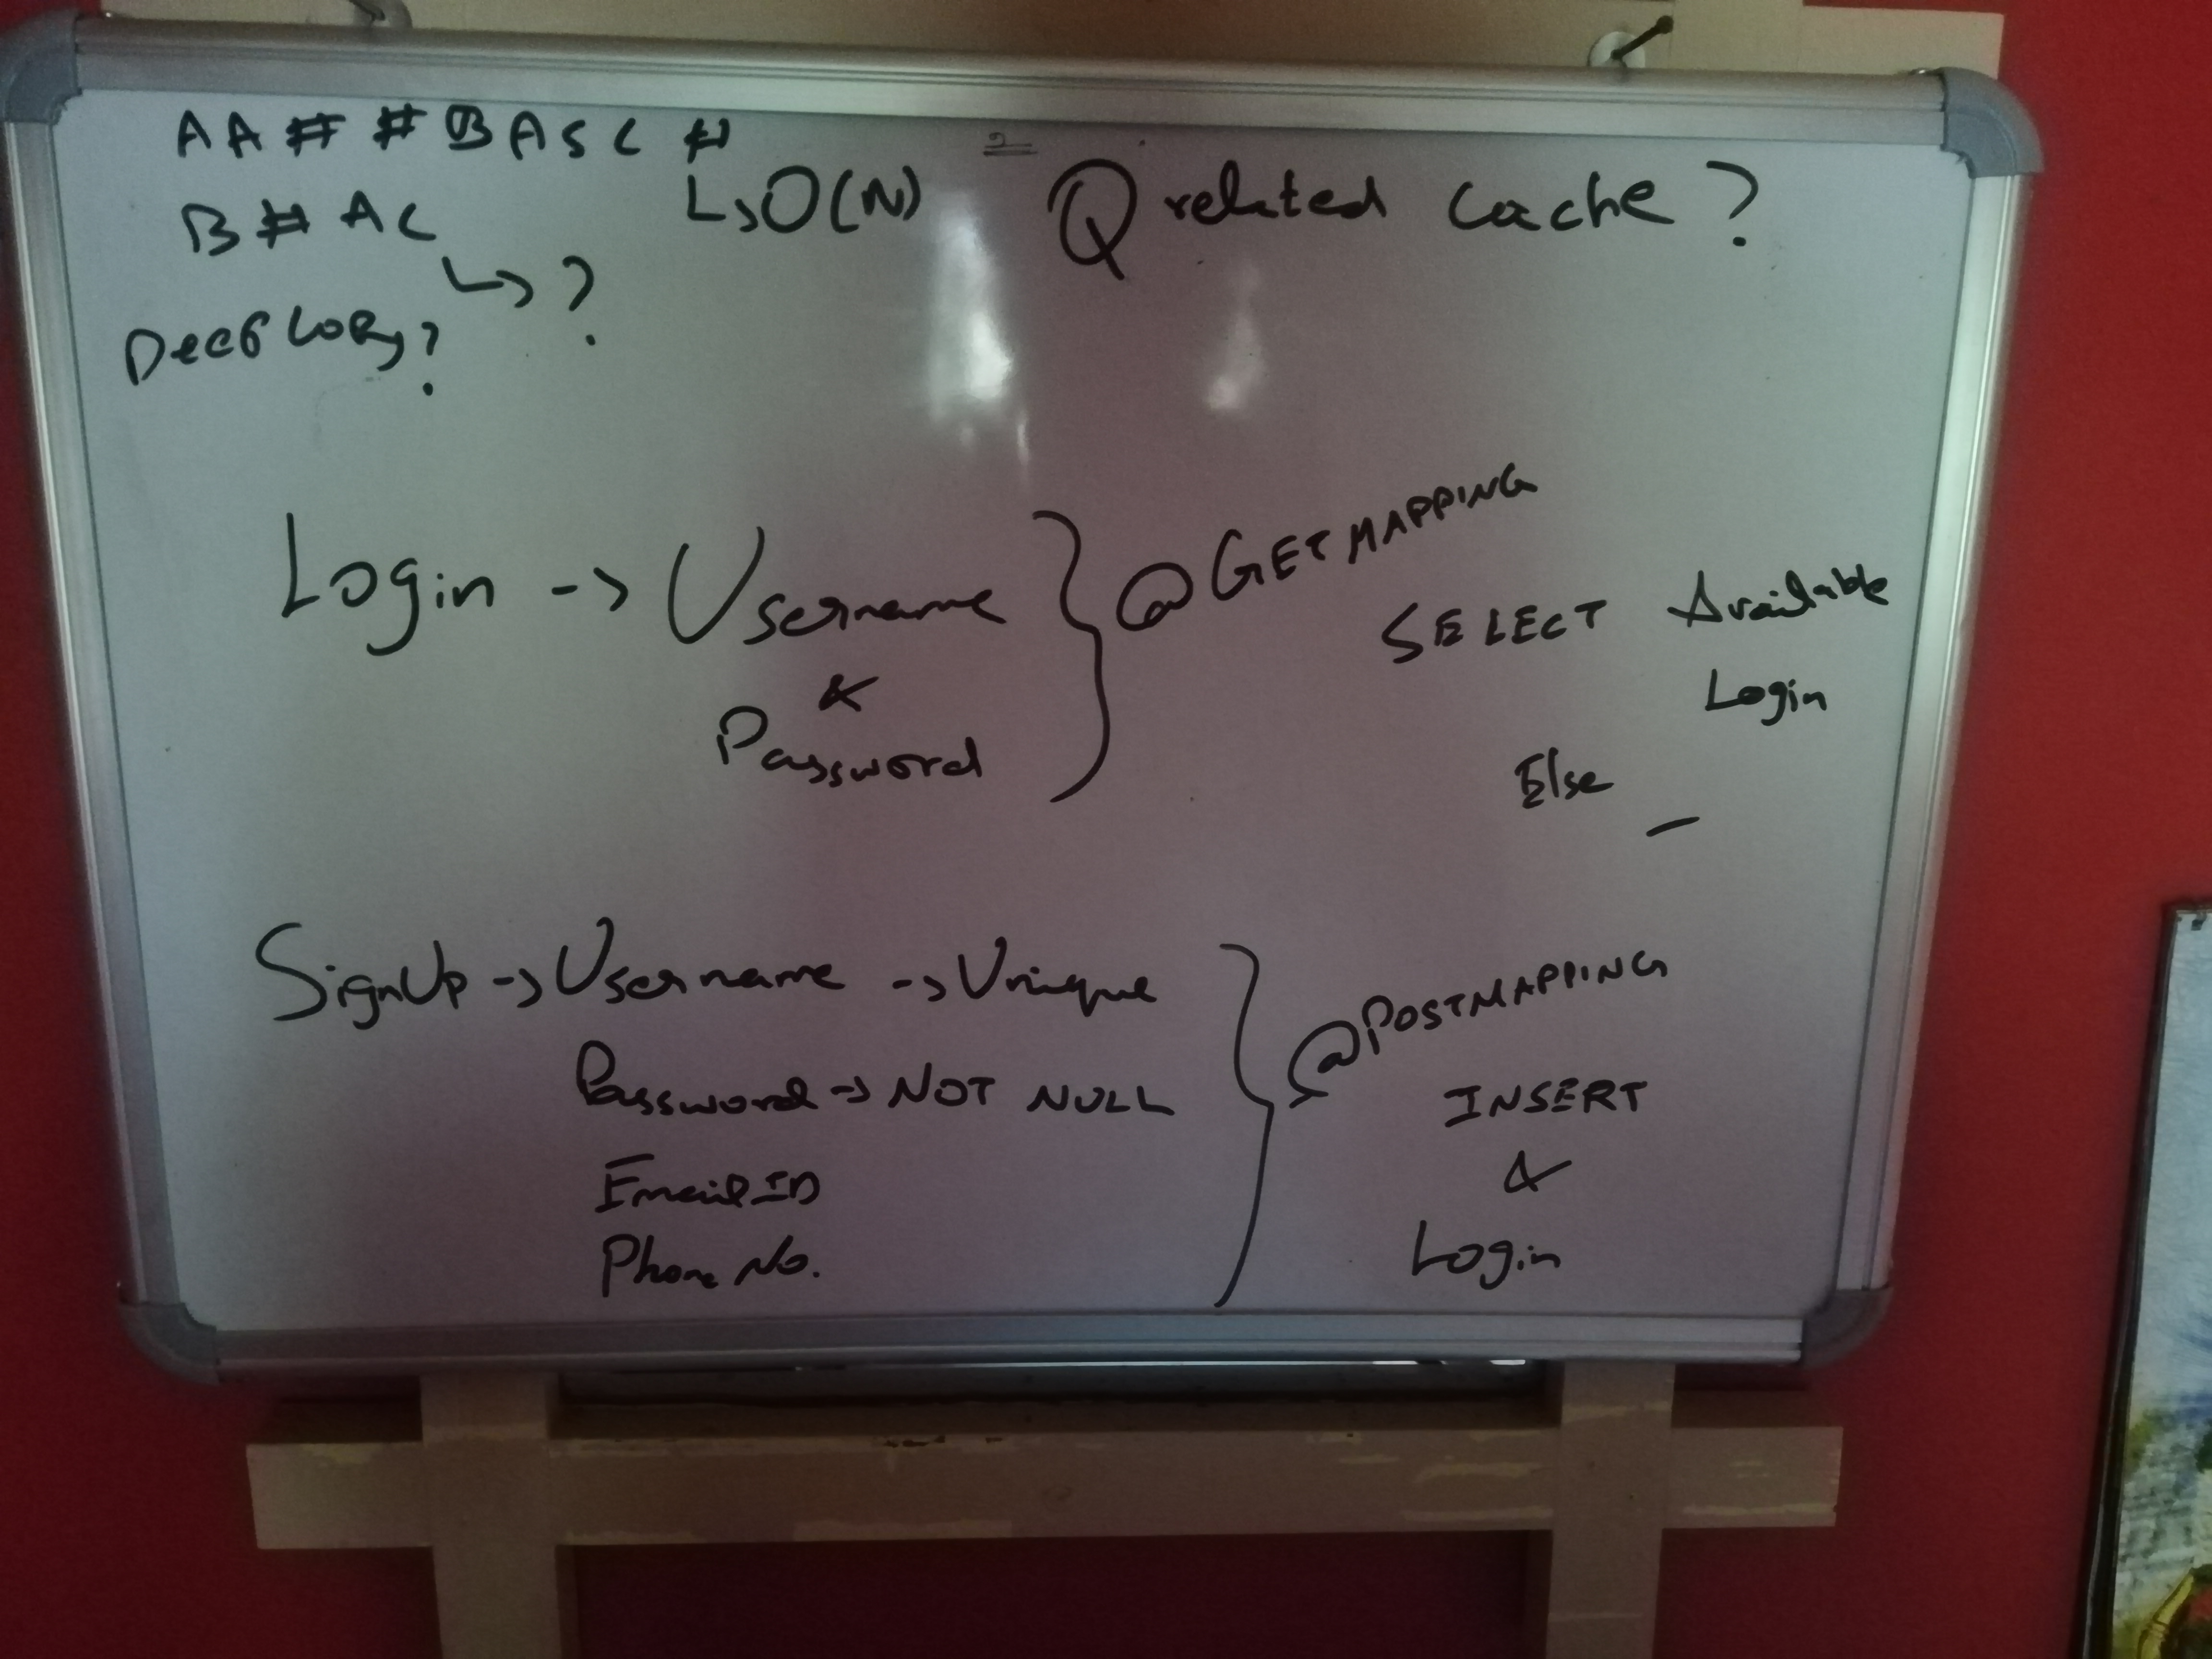 AA##BASC#
↳O(N)
B#AC
↳?
Q related Cache?
Login -> Username
&
Password
@GETMAPPING
SELECT Available
Login
Else _
SignUp -> Username -> Unique
Password -> NOT NULL
EmailID
Phone No.
@POSTMAPPING
INSERT
&
Login